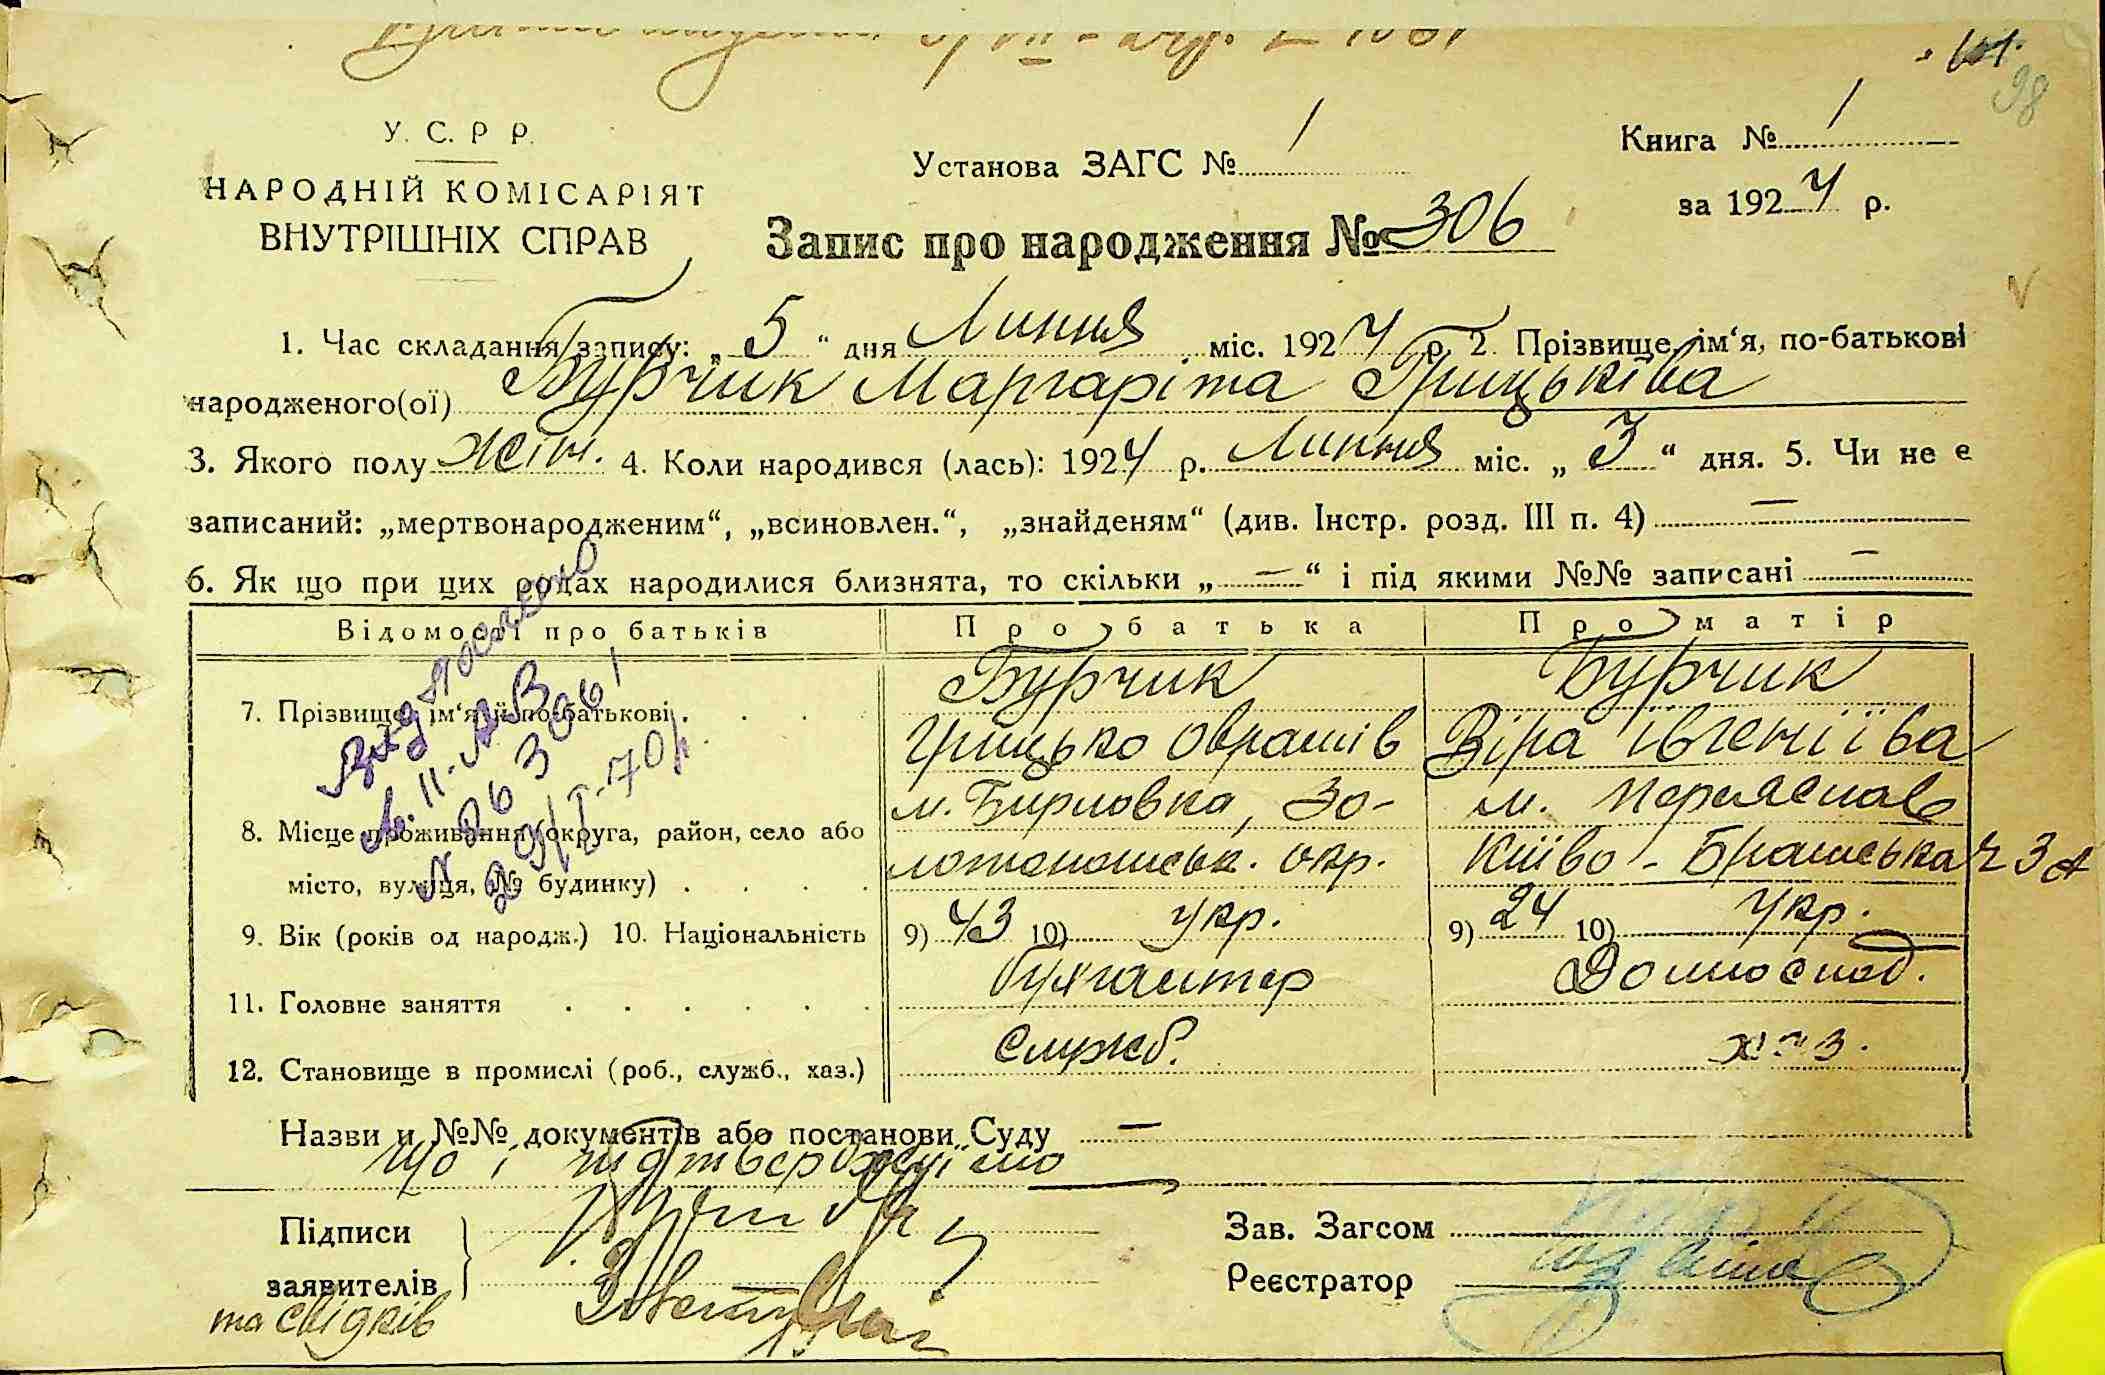 98
У. С. Р Р.
Установа ЗАГС № 1
Книга № 1
НАРОДНІЙ КОМІСАРІЯТ
за 1924 р.
ВНУТРІШНІХ СПРАВ
Запис про народження № 306
1. Час складання запису: „ 5 “ дня Липня міс. 1924 р. 2. Прізвище, ім‘я, по-батькові
народженого(ої) Бурчик Маргаріта Грицьківа
3. Якого полу жін. 4. Коли народився (лась): 1924 р. Липня міс. „ 3 “ дня. 5. Чи не є
записаний: „мертвонародженим“, „всиновлен.“, „знайденям“ (див. Інстр. розд. III п. 4) —
6. Як що при цих родах народилися близнята, то скільки „ — “ і під якими №№ записані —
Відомості про батьків Про батька Про матір
7. Прізвище, ім‘я й по-батькові . . . Бурчик Бурчик
Грицько Оврамів Віра Івгеніїва
м. Бирловка, Зо- м. Переяслав
8. Місце проживання (округа, район, село або лотоношськ. окр. Київо-Брамська ч 3а
місто, вулиця, № будинку) . . . .
9. Вік (років од народж.) 10. Національність 9) 43 10) укр. 9) 24 10) укр.
11. Головне заняття . . . . . . бухгалтер Домогоспод.
12. Становище в промислі (роб., служб., хаз.) служб. хаз.
Назви и №№ документів або постанови Суду —
Що і підтверджуїмо
Підписи
заявителів
та свідків
Зав. Загсом
Реєстратор